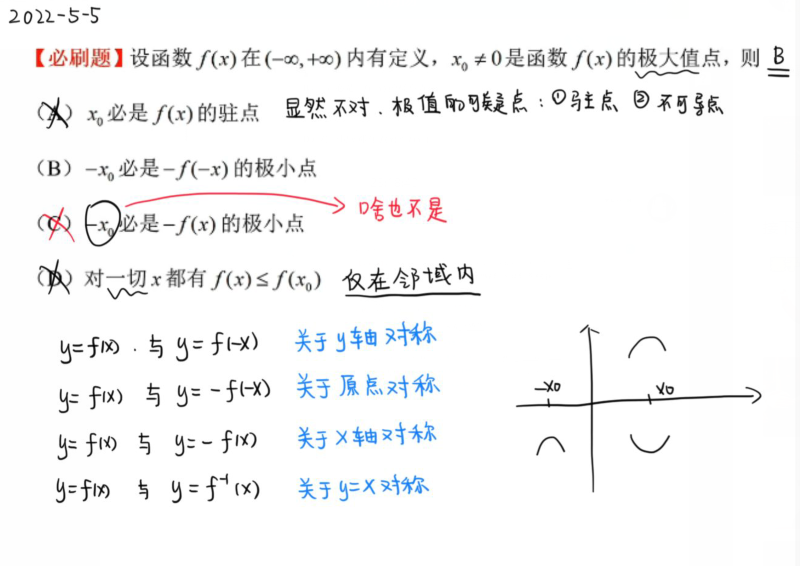 2022-5-5
【必刷题】设函数 f(x) 在 (-∞,+∞) 内有定义，x₀ ≠ 0 是函数 f(x) 的极大值点，则 B
(A) x₀ 必是 f(x) 的驻点 显然不对. 极值的可疑点：①驻点 ② 不可导点
(B) -x₀ 必是 -f(-x) 的极小点
(C) -x₀ 必是 -f(x) 的极小点 啥也不是
(D) 对一切 x 都有 f(x) ≤ f(x₀) 仅在邻域内
y=f(x) . 与 y = f(-x) 关于 y轴 对称
y= f(x) 与 y= - f(-x) 关于 原点 对称
-x₀ x₀
y= f(x) 与 y= - f(x) 关于 x轴对称
y=f(x) 与 y= f⁻¹(x) 关于 y=x 对称